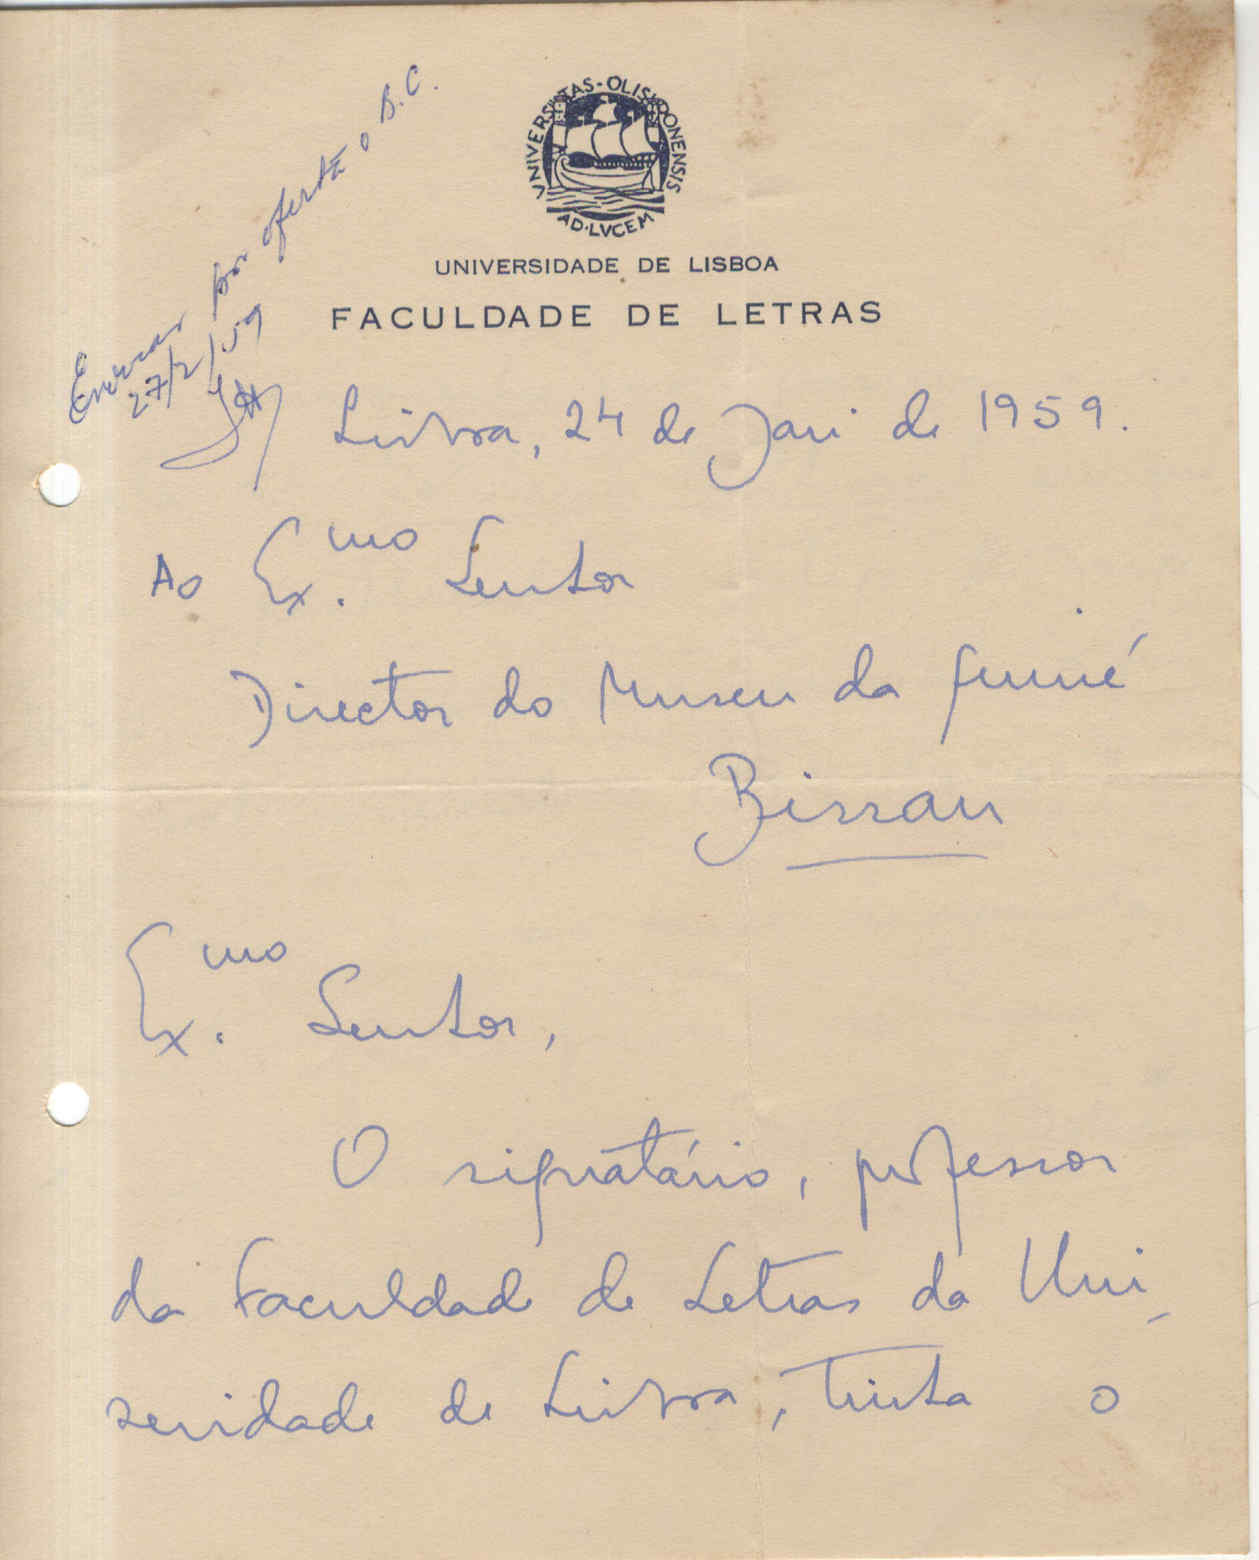 UNIVERSITAS·OLISIPONENSIS
AD·LVCEM
UNIVERSIDADE DE LISBOA
FACULDADE DE LETRAS
Enviar por oferta o B.C.
27/2/59
Lisboa, 24 de Jan de 1959.
Ao Ex.mo Senhor
Director do Museu da Guiné
Bissau
Ex.mo Senhor,
O signatário, professor
da Faculdade de Letras da Uni-
versidade de Lisboa, tinha o